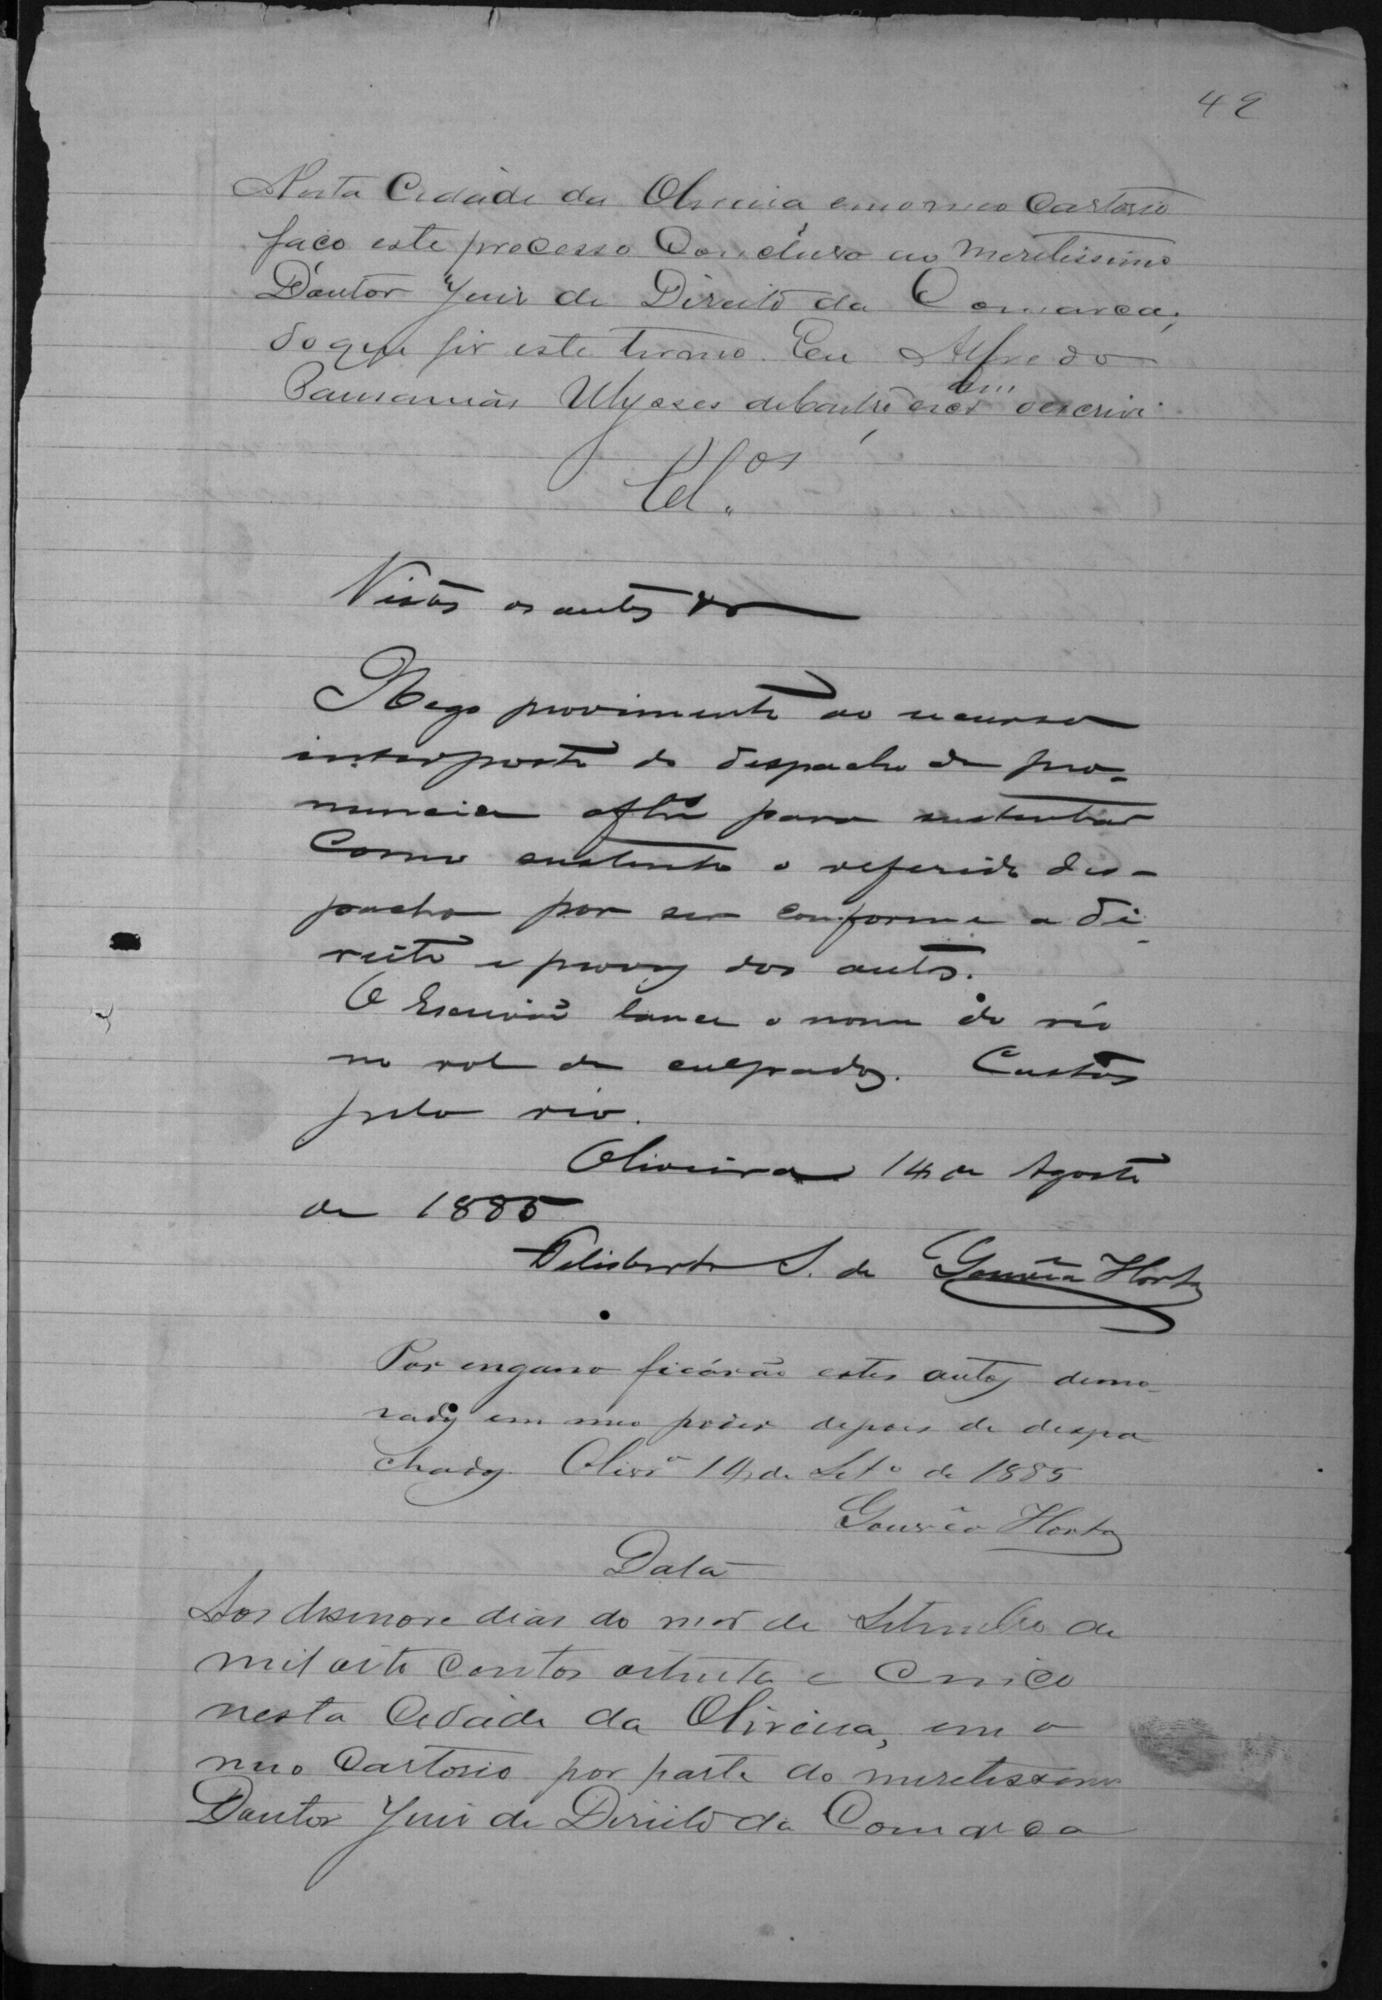 49
Nesta Cidade da Oliveira, em o meo Cartorio
faço este processo Concluso ao Meretissimo
Doutor Juis de Direito da Comarca;
do que fis este termo. Eu Alfredo
Pausanias Ulysses de Castro escrivam o escrivi
Clos.
Vistos os autos &
Nego provimento ao recurso
interposto do despacho de pro-
nuncia afls para sustentar
como sustento o referido des-
pacho por ser conforme a di-
reito e provas dos autos.
O Escrivão lance o nome do réo
no rol de culpados. Custas
pelo réo.
Oliveira 14 de Agosto
de 1885
Felisberto S. de Gouvêa Horta
Por engano ficárão estes autos demo-
rados em meo poder depois de despa
chados. Olivra 14 de Seto de 1885
Gouvêa Horta
Data
Aos desenove dias do mes de Setembro de
mil oito centos oitenta e cinco
nesta Cidade da Oliveira, em o
meo Cartorio por parte do meretissimo
Doutor Juis de Direito da Comarca